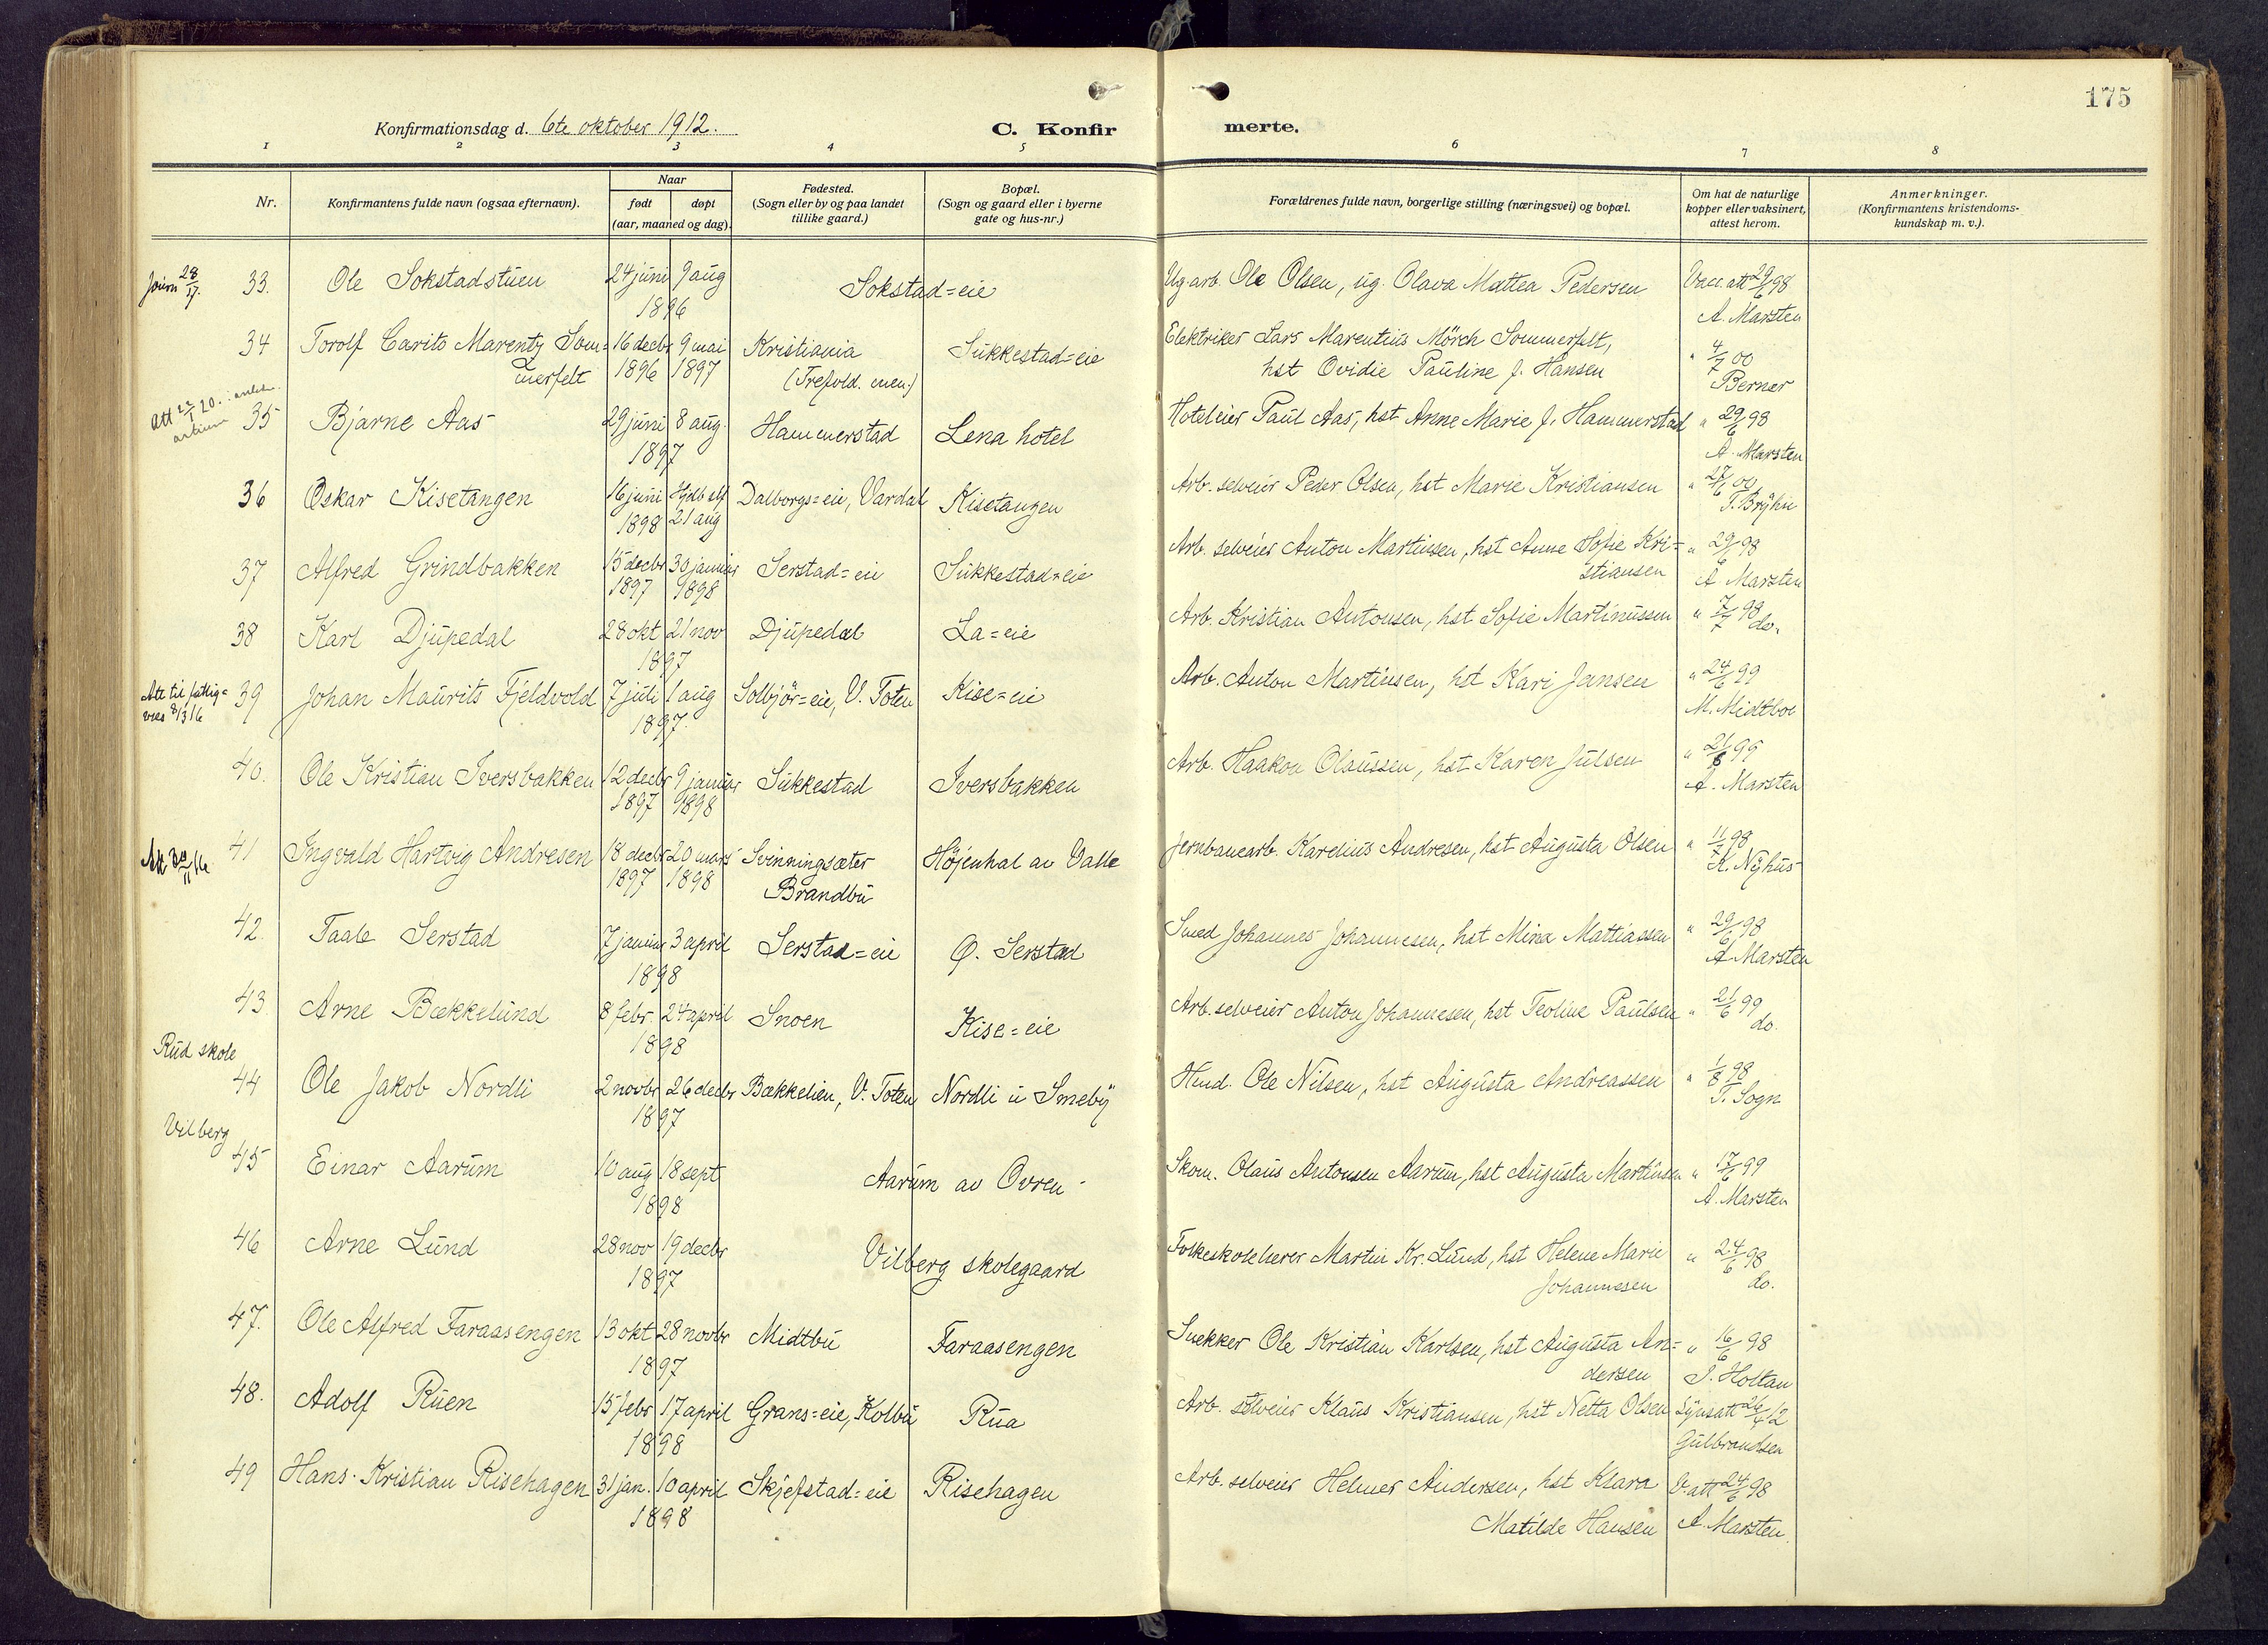 175
Konfirmationsdag d. 6te oktober 1912. C. Konfirmerte.
1 2 3 4 5 6 7 8
Nr. Konfirmantens fulde navn (ogsaa efternavn). Naar født døpt (aar, maaned og dag). Fødested. (Sogn eller by og paa landet tillike gaard.) Bopæl. (Sogn og gaard eller i byerne gate og hus-nr.) Forældrenes fulde navn, borgerlige stilling (næringsvei) og bopæl. Om hat de naturlige kopper eller vaksinert, attest herom. Anmerkninger. (Konfirmantens kristendoms-kundskap m. v.).
28/17. 33. Ole Sokstadstuen 24 juni 9 aug Sokstad=eie Ug. arb. Ole Olsen, ug. Olava Mattea Pedersen Vacc. att 29/6 98
1896 A. Marsten
34 Torolf Carito Marentz Som= 16 decbr 9 mai Kristiania Sukkestad=eie Elektriker Lars Marentius Mörch Sommerfelt, " 4/7 00
merfelt 1896 1897 (Trefold. men.) hst Ovidie Pauline f. Hansen Berner
Att 22/1 20. artium 35 Bjarne Aas 29 juni 8 aug. Hammerstad Lena hotel Hoteleier Paul Aas, hst Anne Marie f. Hammerstad " 29/6 98
1897 A. Marsten
36 Oskar Kisetangen 16 juni Hjdb Dalborgs=eie, Vardal Kisetangen Arb. selveier Peder Olsen, hst Marie Kristiansen " 27/6 00
1898 21 aug T. Bryhn
37 Alfred Grindbakken 15 decbr 30 januar Serstad=eie Sukkestad=eie Arb. selveier Anton Martinsen, hst Anne Sofie Kri= " 29/6 98
1897 1898 stiansen A Marsten
38 Karl Djupedal 28 okt 21 nov Djupedal La=eie Arb. Kristian Antonsen, hst Sofie Martinussen " 7/7 98
1897 do.
Att til fattig= 39 Johan Maurits Fjeldvold 7 juli 1 aug Solbjör=eie, V. Toten Kise=eie Arb. Anton Martinsen, hst Kari Jensen " 24/6 99
8/3 16 1897. M. Midtboe
40. Ole Kristian Iversbakken 12 decbr 9 januar Sukkestad Iversbakken Arb. Haakon Olaussen, hst Karen Julsen " 21/6 99
1897 1898 A. Marsten
Att 30/11 16 41 Ingvald Hartvig Andresen 18 decbr 20 mars Svinningsæter Höjenhal av Valle Jernbanearb. Karelius Andresen, hst Augusta Olsen " 11/7 98
1897 1898 Brandbu K. Nyhus
42. Taale Serstad 7 januar 3 april Serstad=eie Ø. Serstad Smed Johannes Johannesen, hst Mina Mattiassen " 29/6 98
1898 A Marsten
43. Arne Bækkelund 8 febr. 24 april Snoen Kise=eie Arb. selveier Anton Johannesen, hst Teoline Paulsen " 21/6 99
1898 do.
Rud skole
44 Ole Jakob Nordli 2 novbr 26 decbr Bækkelien, V. Toten Nordli u Smeby Hmd. Ole Nilsen, hst Augusta Andreassen " 1/8 98
1897 T. Sogn
Vilberg
45 Einar Aarum 10 aug 18 sept Aarum av Ovren Skom. Olaus Antonsen Aarum, hst Augusta Martinsen " 17/6 99
1898 A. Marsten
46 Arne Lund 28 nov 19 decbr Vilberg skolegaard Folkeskolelærer Martin Kr. Lund, hst Helene Marie " 24/6 98
1897 Johannesen do.
47. Ole Alfred Faraasengen 13 okt 28 novbr Midtbu Faraasengen Snekker Ole Kristian Karlsen, hst Augusta An= " 16/6 98
1897 dersen S. Holtan
48. Adolf Ruen 15 febr 17 april Grans=eie, Kolbu Rua Arb. selveier Klaus Kristiansen, hst Netta Olsen Synsatt 26/4 12
1898 Gulbrandsen
49 Hans Kristian Risehagen 31 jan. 10 april Skjefstad=eie Risehagen Arb. selveier Helmer Andersen, hst Klara V. att 24/6 98
1898 Matilde Hansen A. Marsten.